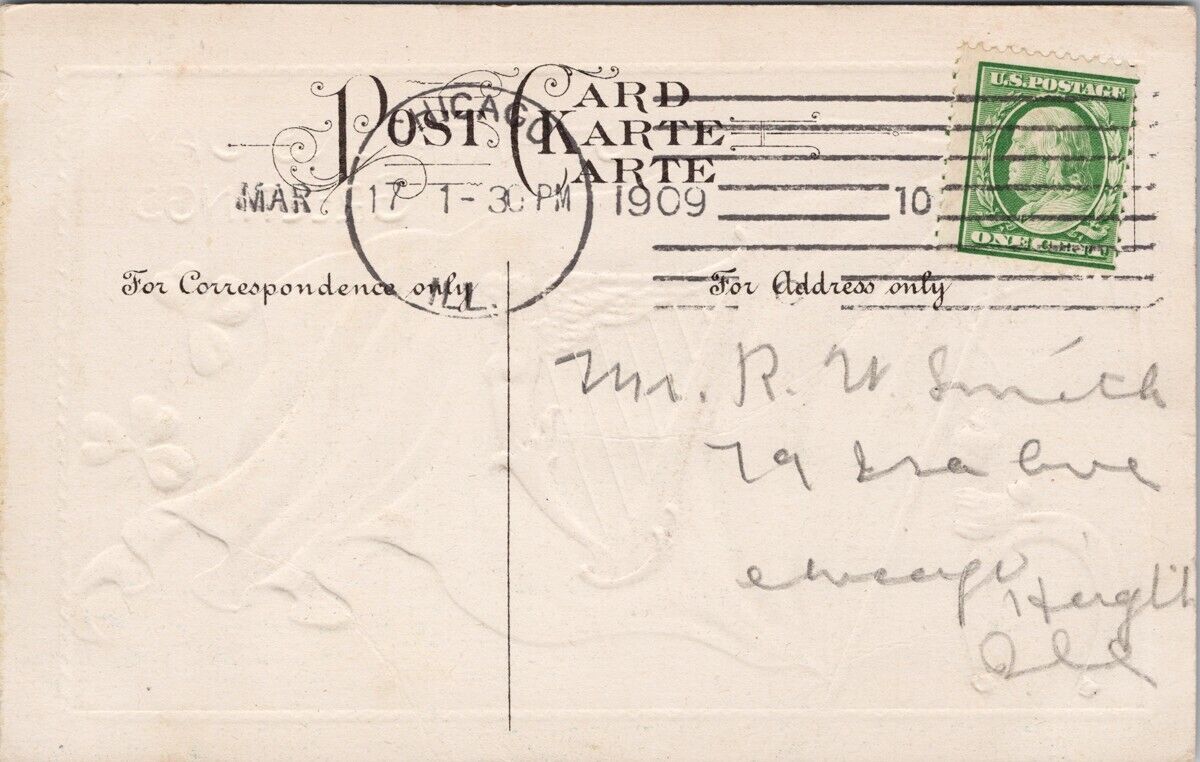 POST CARD
KARTE
CARTE
CHICAGO
MAR 17 1-30 PM 1909 10
ILL.
U.S. POSTAGE
ONE
For Correspondence only
For Address only
Mr. R. W. Smith
79 Ave
Chicago
Heights
Ill